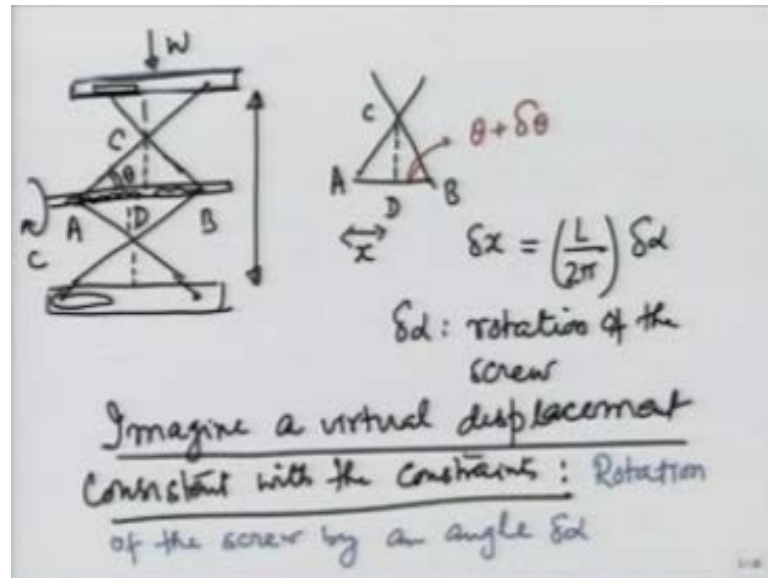 W
C
θ
A D B
C
C
θ + δθ
A D B
x
δx = (L/2π) δα
δα : rotation of the
screw
Imagine a virtual displacement
Consistent with the constraints : Rotation
of the screw by an angle δα